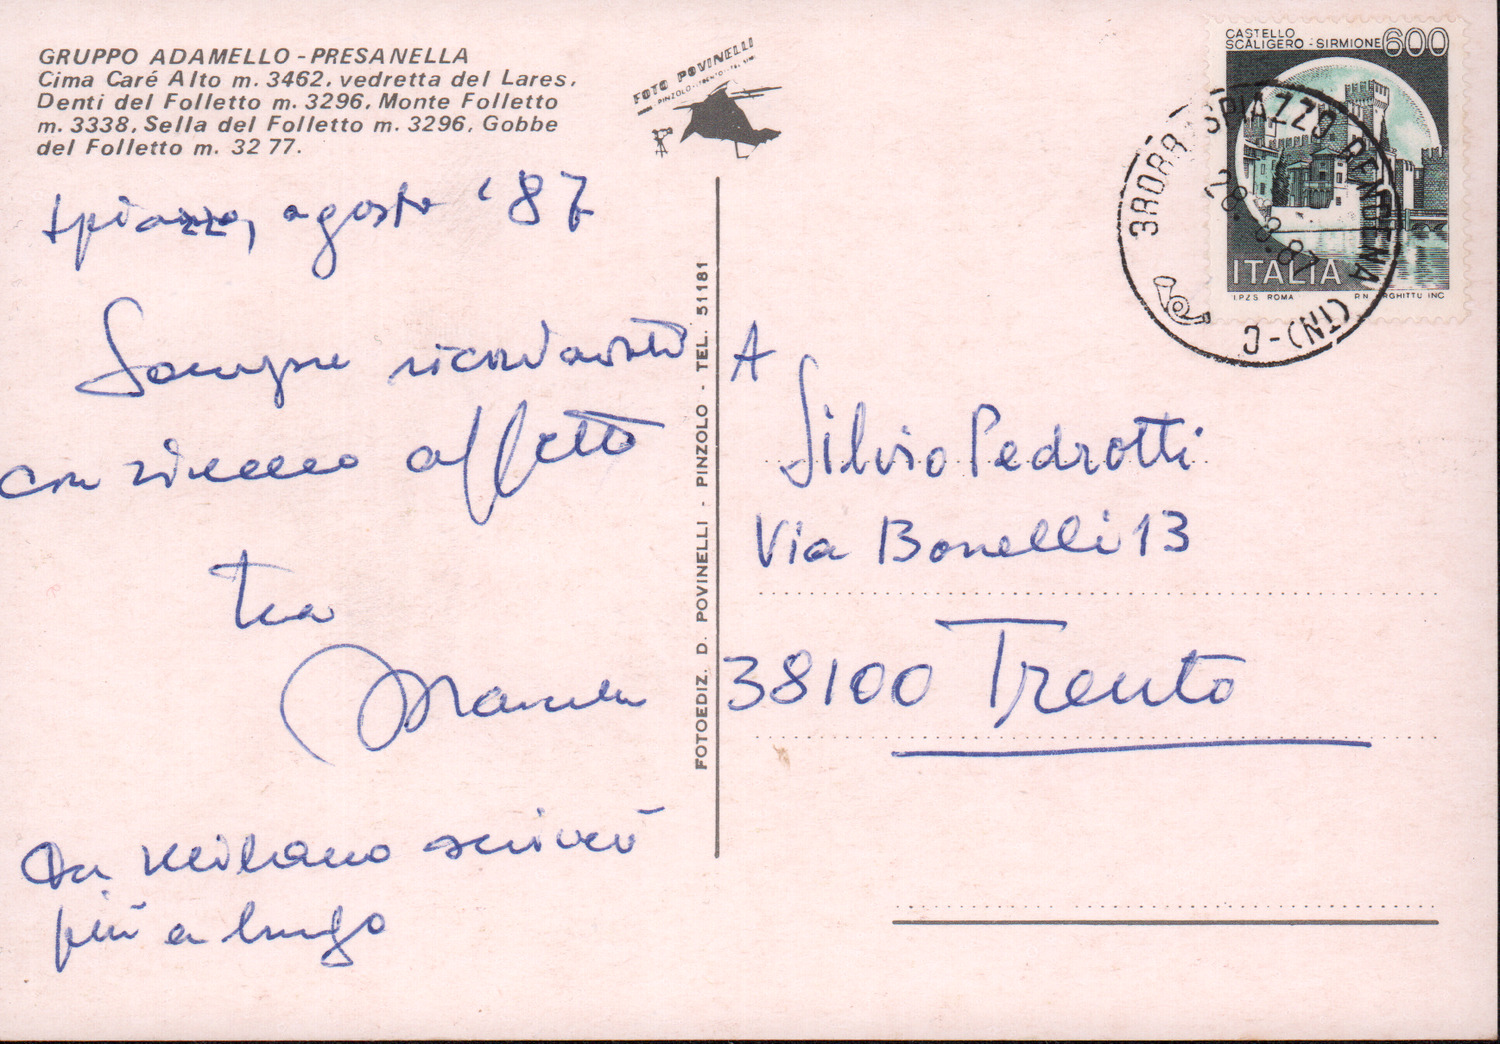 GRUPPO ADAMELLO - PRESANELLA
Cima Caré Alto m. 3462, vedretta del Lares,
Denti del Folletto m. 3296, Monte Folletto
m. 3338, Sella del Folletto m. 3296, Gobbe
del Folletto m. 32 77.
FOTO POVINELLI
Spiazzo, agosto '87
Sempre ricordandoti
con sincero affetto
tua
Da Milano scriverò
più a lungo
FOTOEDIZ. D. POVINELLI - PINZOLO - TEL. 51181
CASTELLO
SCALIGERO - SIRMIONE 600
ITALIA
I.P.Z.S. ROMA
38088 SPIAZZO RENDENA (TN) - C
28.8.87
A
Silvio Pedrotti
Via Bonelli 13
38100 Trento